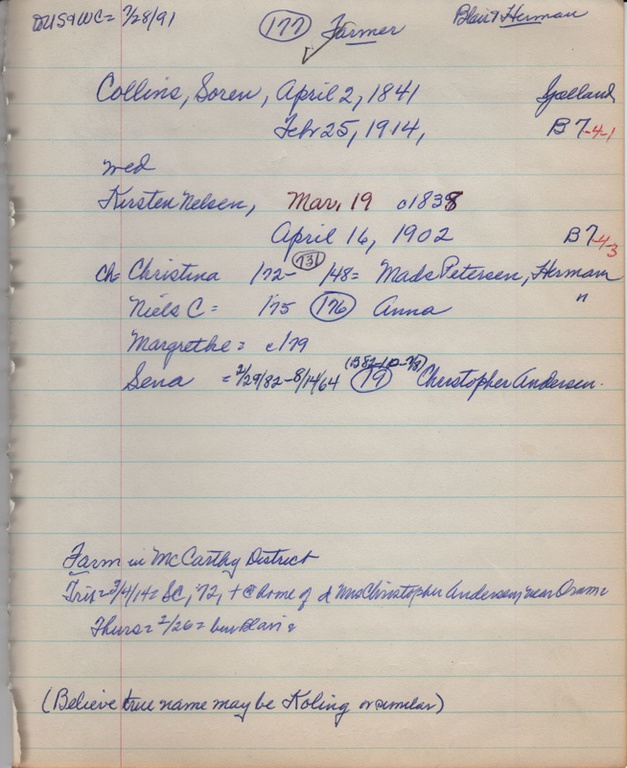 DUS&WC = 7/28/91 (177) Farmer Blair & Herman
Collins, Soren, April 2, 1841 Sjælland
Feb 25, 1914, B7-4-1
wed
Kirsten Nelsen, Mar, 19 c1838
April 16, 1902 B7-4-3
ch = Christina 172- (731) 148= Mads Petersen, Herman
Niels C = 175 (176) Anna "
Margrethe = c179
Sena = 2/29/82-8/14/64 (19) Christopher Andersen.
Farm in McCarthy District
Trib = 3/4/14 = SC, '72, + @ home of d Mrs Christopher Andersen, near Orum
Thurs = 2/26 = bur Blair
(Believe true name may be Koling or similar)